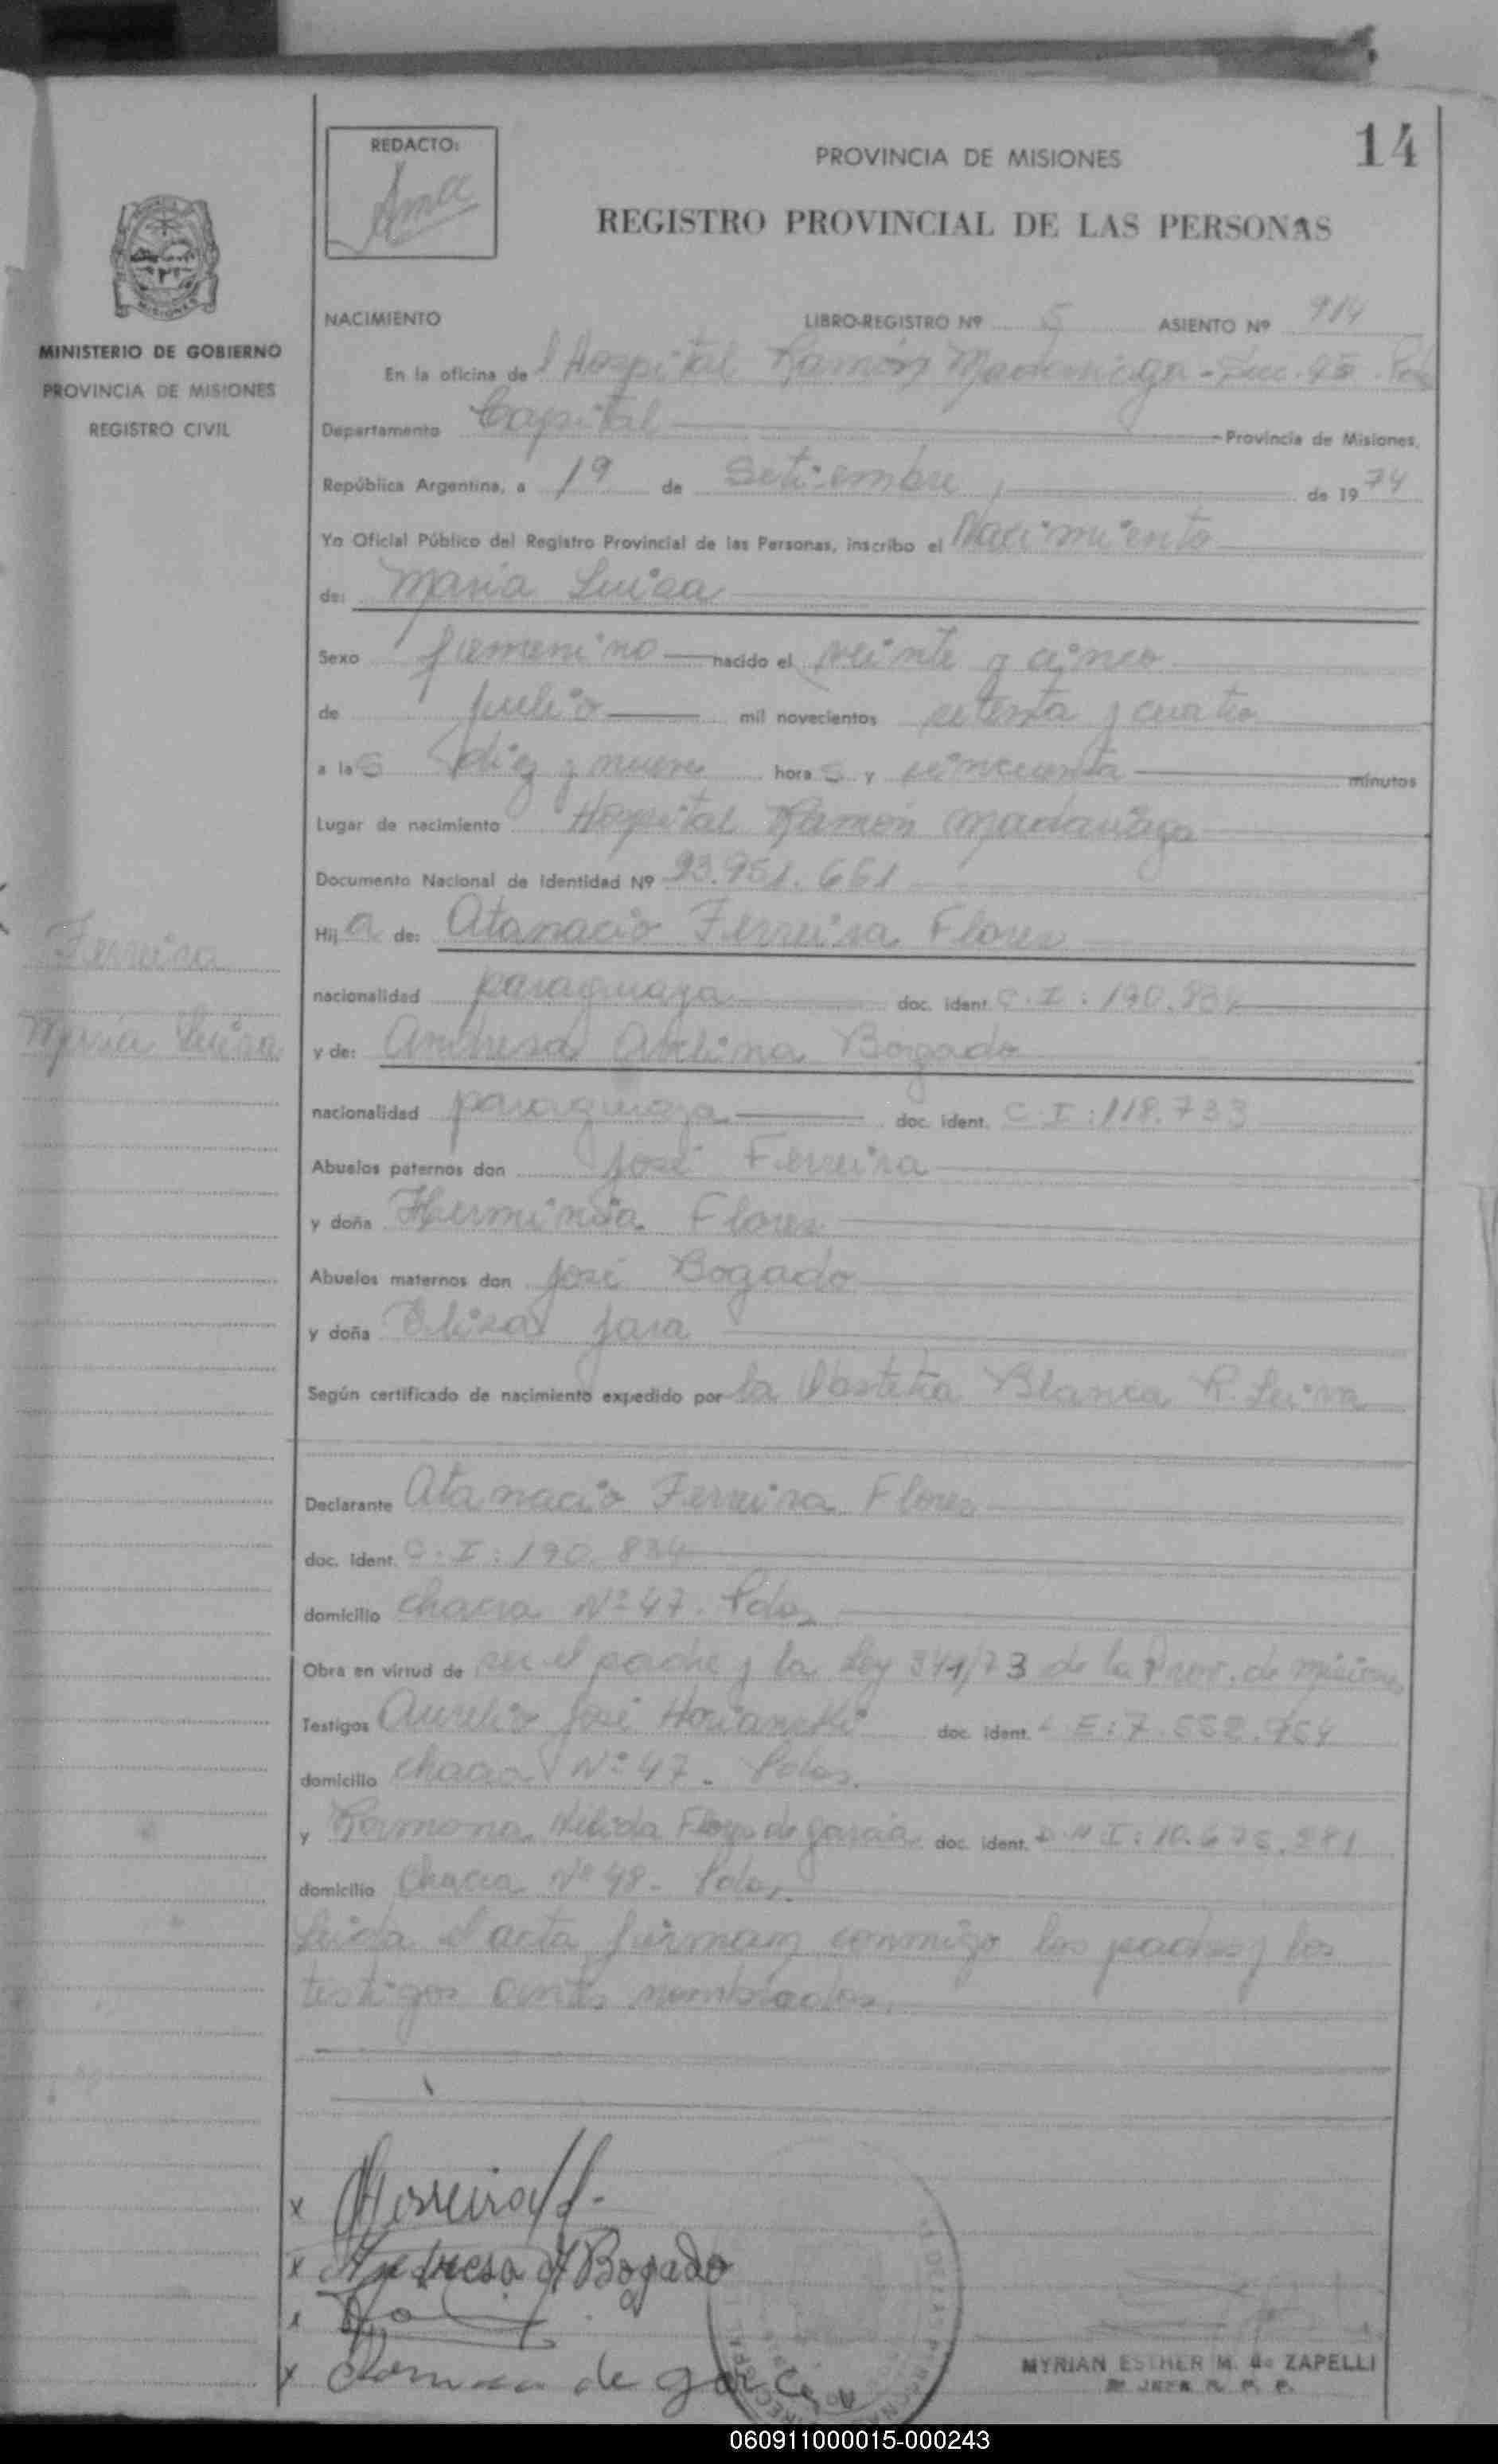 14
REDACTO:
PROVINCIA DE MISIONES
REGISTRO PROVINCIAL DE LAS PERSONAS
MISIONES
MINISTERIO DE GOBIERNO
PROVINCIA DE MISIONES
REGISTRO CIVIL
NACIMIENTO LIBRO-REGISTRO Nº 5 ASIENTO Nº 914
En la oficina del Hospital Ramón Madariaga -
Departamento Capital Provincia de Misiones,
República Argentina, a 19 de Setiembre, de 1974
Yo Oficial Público del Registro Provincial de las Personas, inscribo el Nacimiento
de: Maria Luisa
Sexo femenino nacido el veinte y cinco
de Julio mil novecientos setenta y cuatro
a las diez y nueve horas y cincuenta minutos
Lugar de nacimiento Hospital Ramón Madariaga
Documento Nacional de Identidad Nº 93.951.661
Hija de: Atanacio Ferreira Flores
Ferreira
Maria Luisa
nacionalidad paraguaya doc. ident. C.I: 190.834
y de: Andresa Avelina Bogado
nacionalidad paraguaya doc. ident. C.I: 118.733
Abuelos paternos don José Ferreira
y doña Herminia Flores
Abuelos maternos don José Bogado
y doña Elisa Jara
Según certificado de nacimiento expedido por la Obstetra Blanca R. Leiva
Declarante Atanacio Ferreira Flores
doc. ident. C.I: 190.834
domicilio chacra Nº 47. Pdas
Obra en virtud de ser el padre y la Ley 341/73 de la Prov. de Misiones
Testigos Aurelio José doc. ident. L.E: 7.552.954
domicilio chacra Nº 47. Pdas.
y Ramona Nélida Flores de García doc. ident. D.N.I: 10.675.281
domicilio Chacra Nº 48. Pdas.
Leida el acta firman conmigo los padres y los
testigos antes nombrados.
x Ferreira f.
x Andresa A Bogado
x
x Ramona de Garcia
MYRIAN ESTHER M. de ZAPELLI
JEFA R. P. P.
060911000015-000243